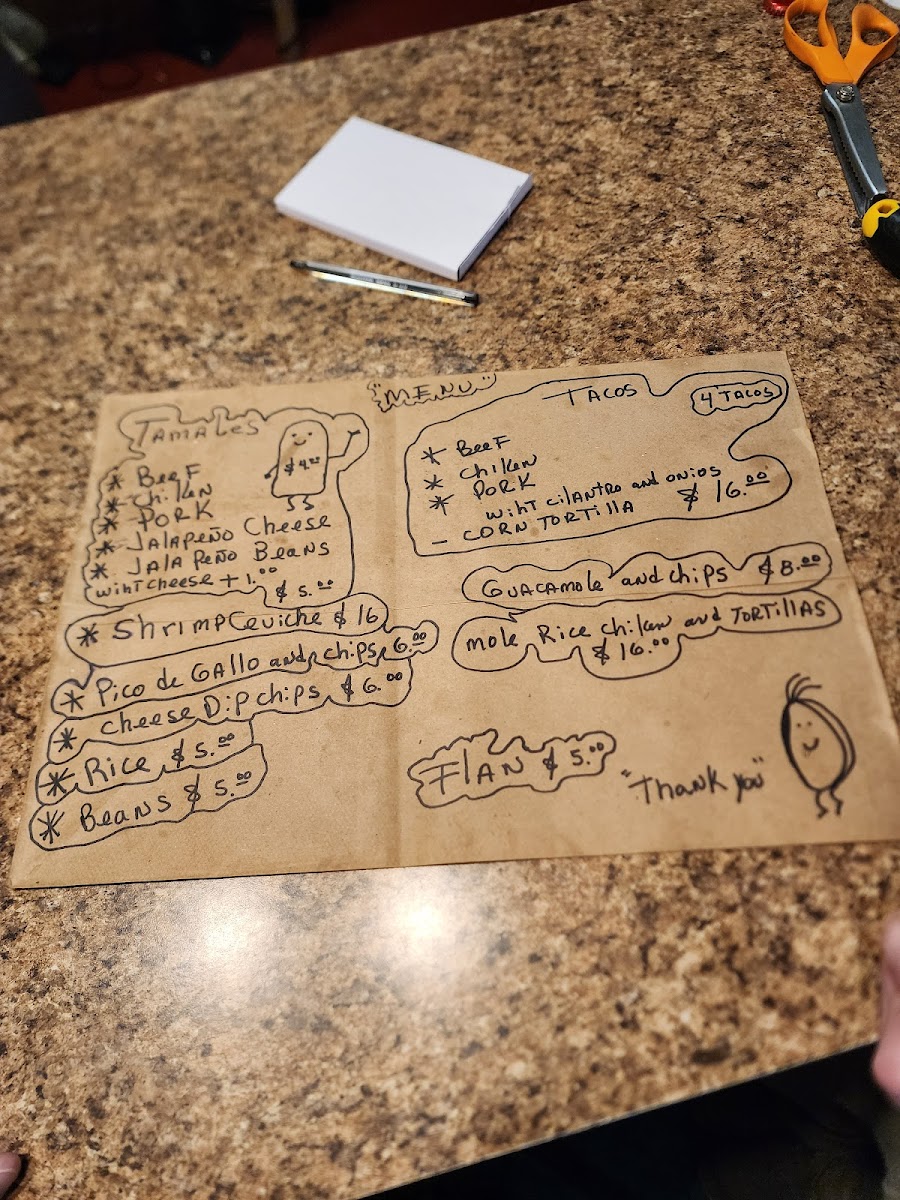 "MENU"
TAMALES
$ 4.00
* BEEF
* Chi.KEN
* PORK
* JALAPEÑO Cheese
* JALAPEÑO BEANS
wiht cheese + 1.00
$ 5.00
* ShrimpCeviche $ 16
* Pico de GAllo and chips 6.00
* cheese Dip chips $ 6.00
* Rice $ 5.00
* Beans $ 5.00
TACOS
4 TACOS
* BEEF
* ChiKEN
* PORK
wiht cilantro and onios
- CORN TORTillA $ 16.00
GUACAMole and chips $ 8.00
mole Rice chiken and TORTillAS
$ 16.00
FlAN $ 5.00
"Thank you"